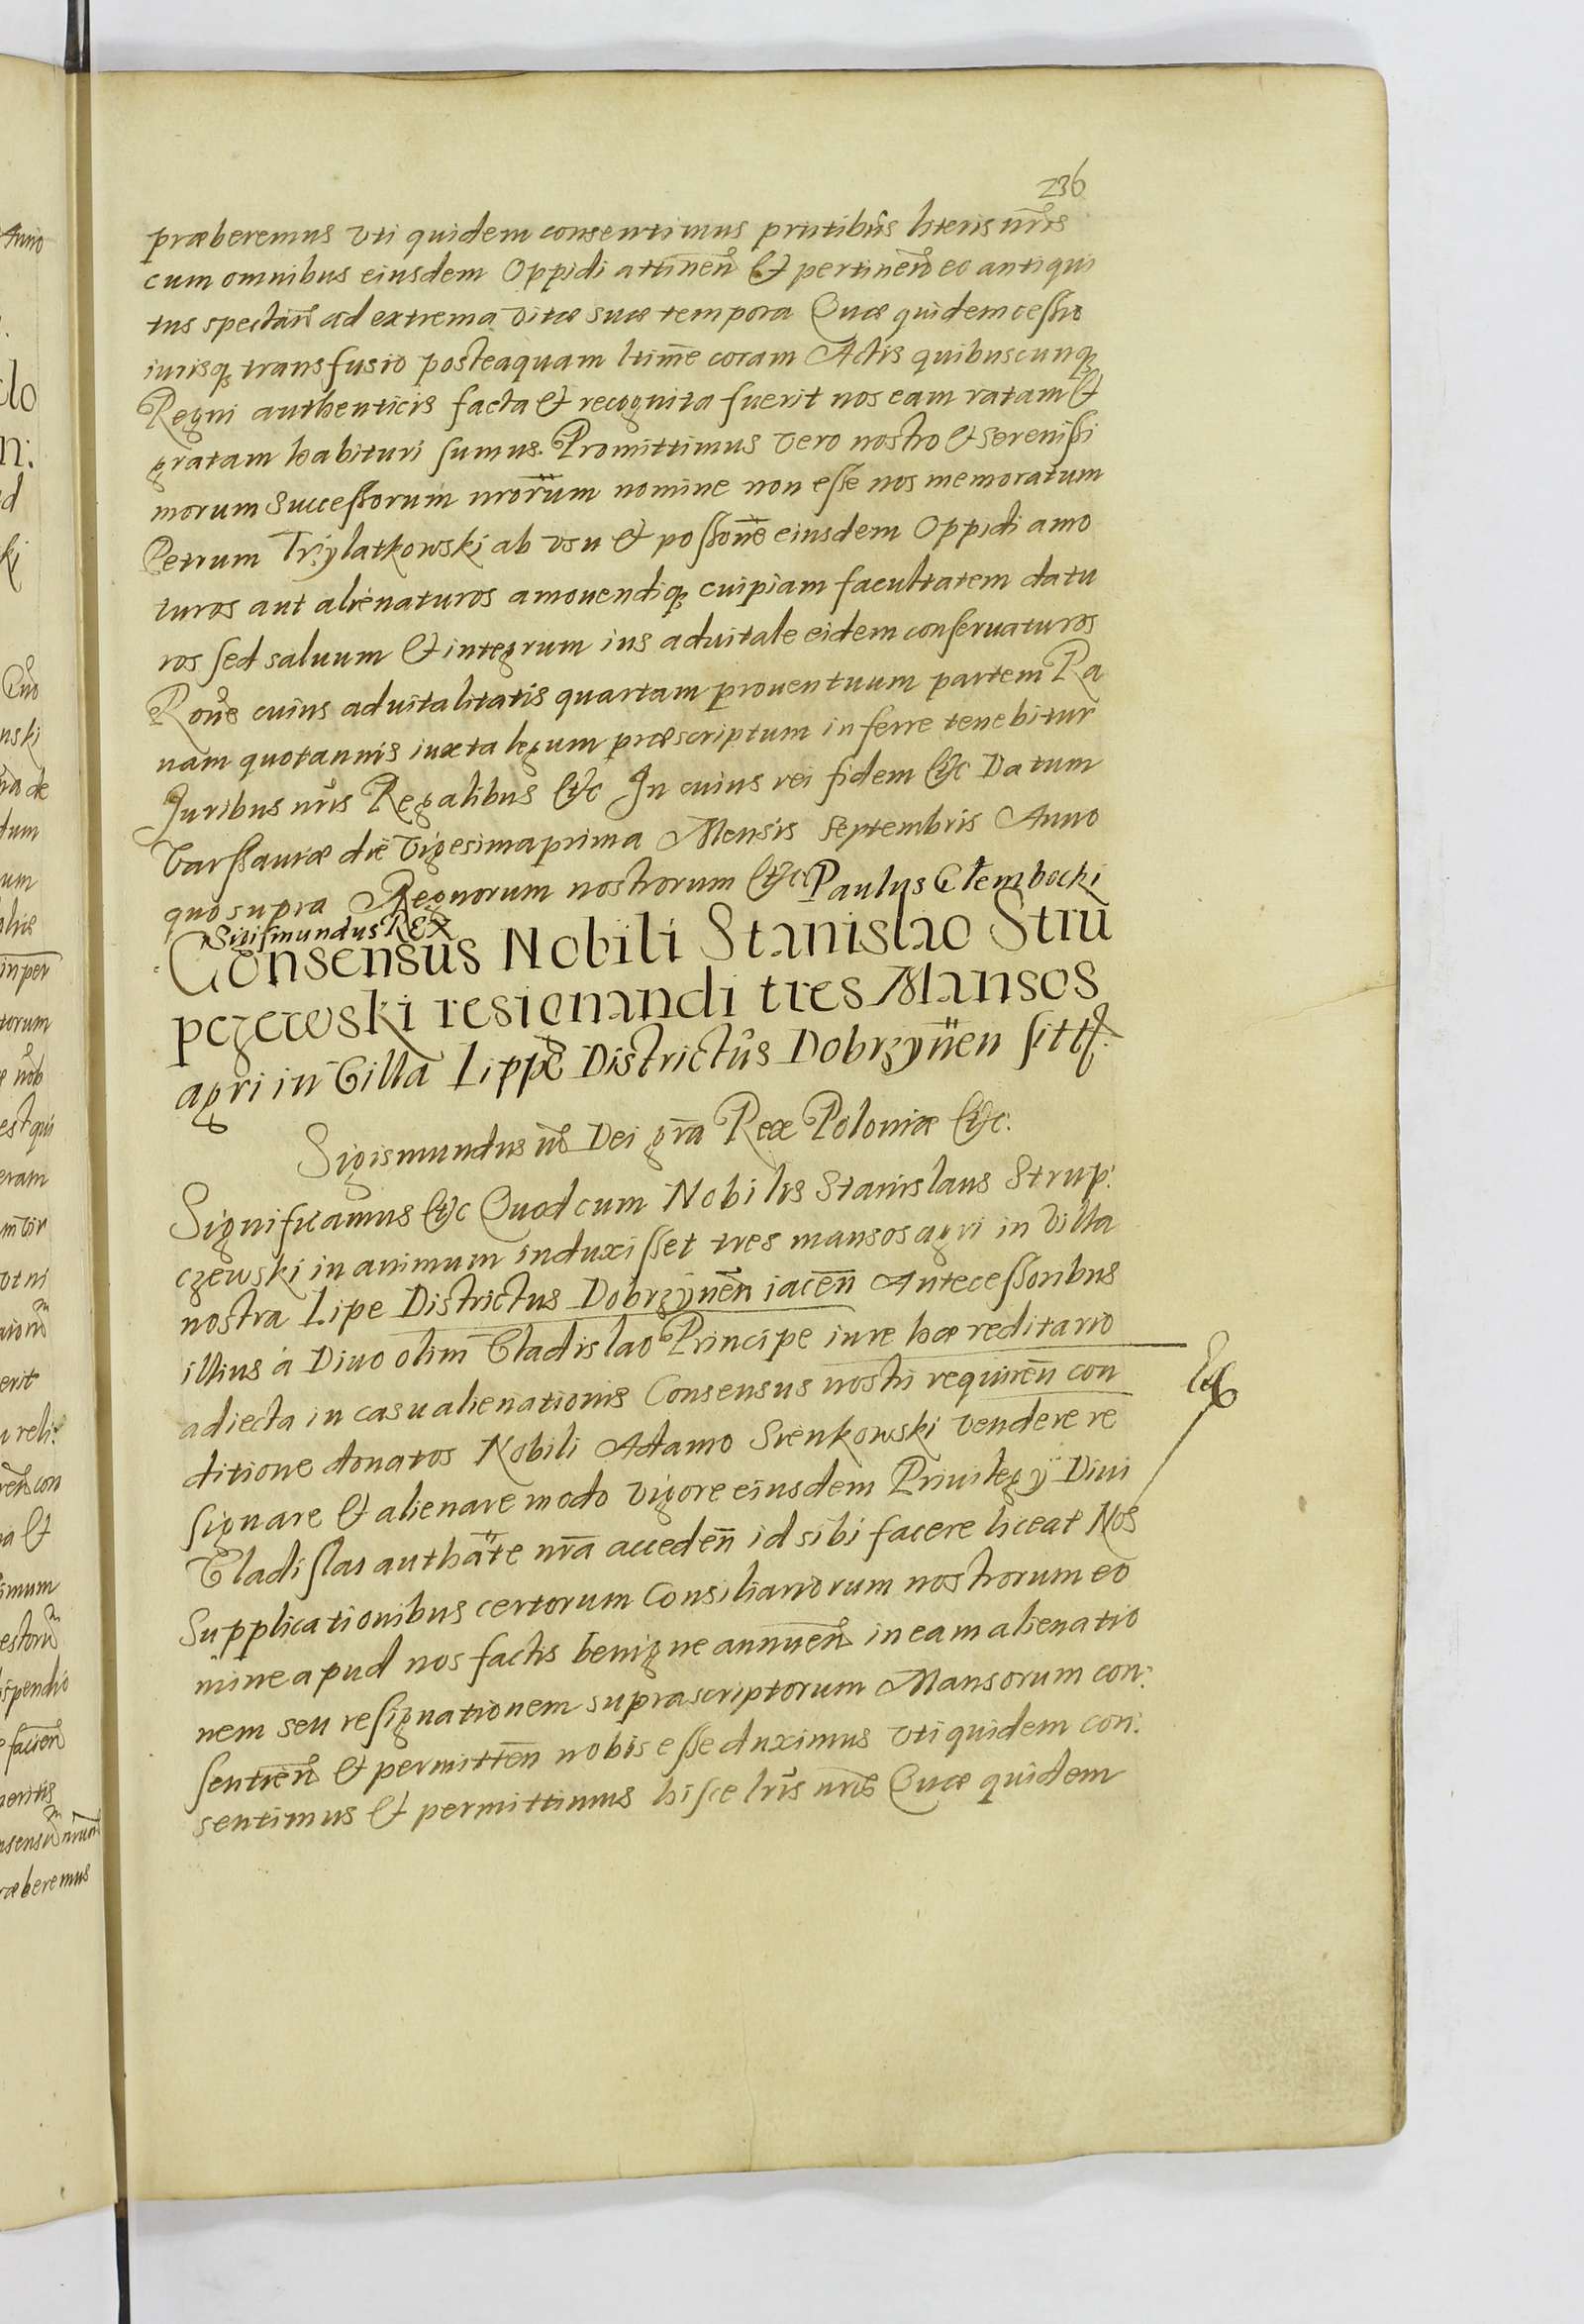 236
præberemus vti quidem consentimus pñtibus literis nr̃is
cum omnibus eiusdem Oppidi attineñ & pertineñ eo antiqui
tus spectañ ad extrema vitæ suæ tempora Quæ quidem cessio
iurisq; transfusio posteaquam ltime coram Actis quibuscunq;
Regni authenticis facta & recognita fuerit nos eam ratam &
gratam habituri sumus. Promittimus vero nostro & Serenissi
morum Successorum nrorum nomine non esse nos memoratum
Petrum Trzylatkowski ab vsu & possone eiusdem Oppidi amo
turos aut alienaturos amouendiq; cuipiam facultatem datu
ros sed saluum & integrum ius aduitale eidem conseruaturos
Rone cuius aduitalitatis quartam prouentuum partem Ra
uam quotannis iuxta legum præscriptum inferre tenebitur
Juribus nr̃is Regalibus &c In cuius rei fidem &c Datum
Varssauiæ die Vigesima prima Mensis Septembris Anno
quo supra Regnorum nostrorum &c Paulus Clembocki
Sigismundus REX
Consensus Nobili Stanislao Stru
pczewski resignandi tres Mansos
agri in Villa Lippe Districtus Dobrzyñen sitt.
Sigismundus 3us Dei grã Rex Poloniæ &c.
Significamus &c Quod cum Nobilis Stanislaus Strup:
czewski in animum induxisset tres mansos agri in Villa
nostra Lipe Districtus Dobrzynen̄ iacen̄ Antecessoribus
illius à Diuo olim Vladislao Principe iure hæreditario
adiecta in casu alienationis Consensus nostri requiren̄ con
ditione donatos Nobili Adamo Sienkowski vendere re
signare & alienare modo vigore eiusdem Priuilegÿ Diui
Vladislai authãte nr̃a acceden̄ id sibi facere liceat Nos
Supplicationibus certorum Consiliariorum nostrorum eo
nine apud nos factis benigne annuen̄ in eam alienatio
nem seu resignationem suprascriptorum Mansorum con:
sentien̄ & permitten̄ nobis esse duximus vti quidem con:
sentimus & permittimus hisce lr̃is nr̃is Quæ quidem